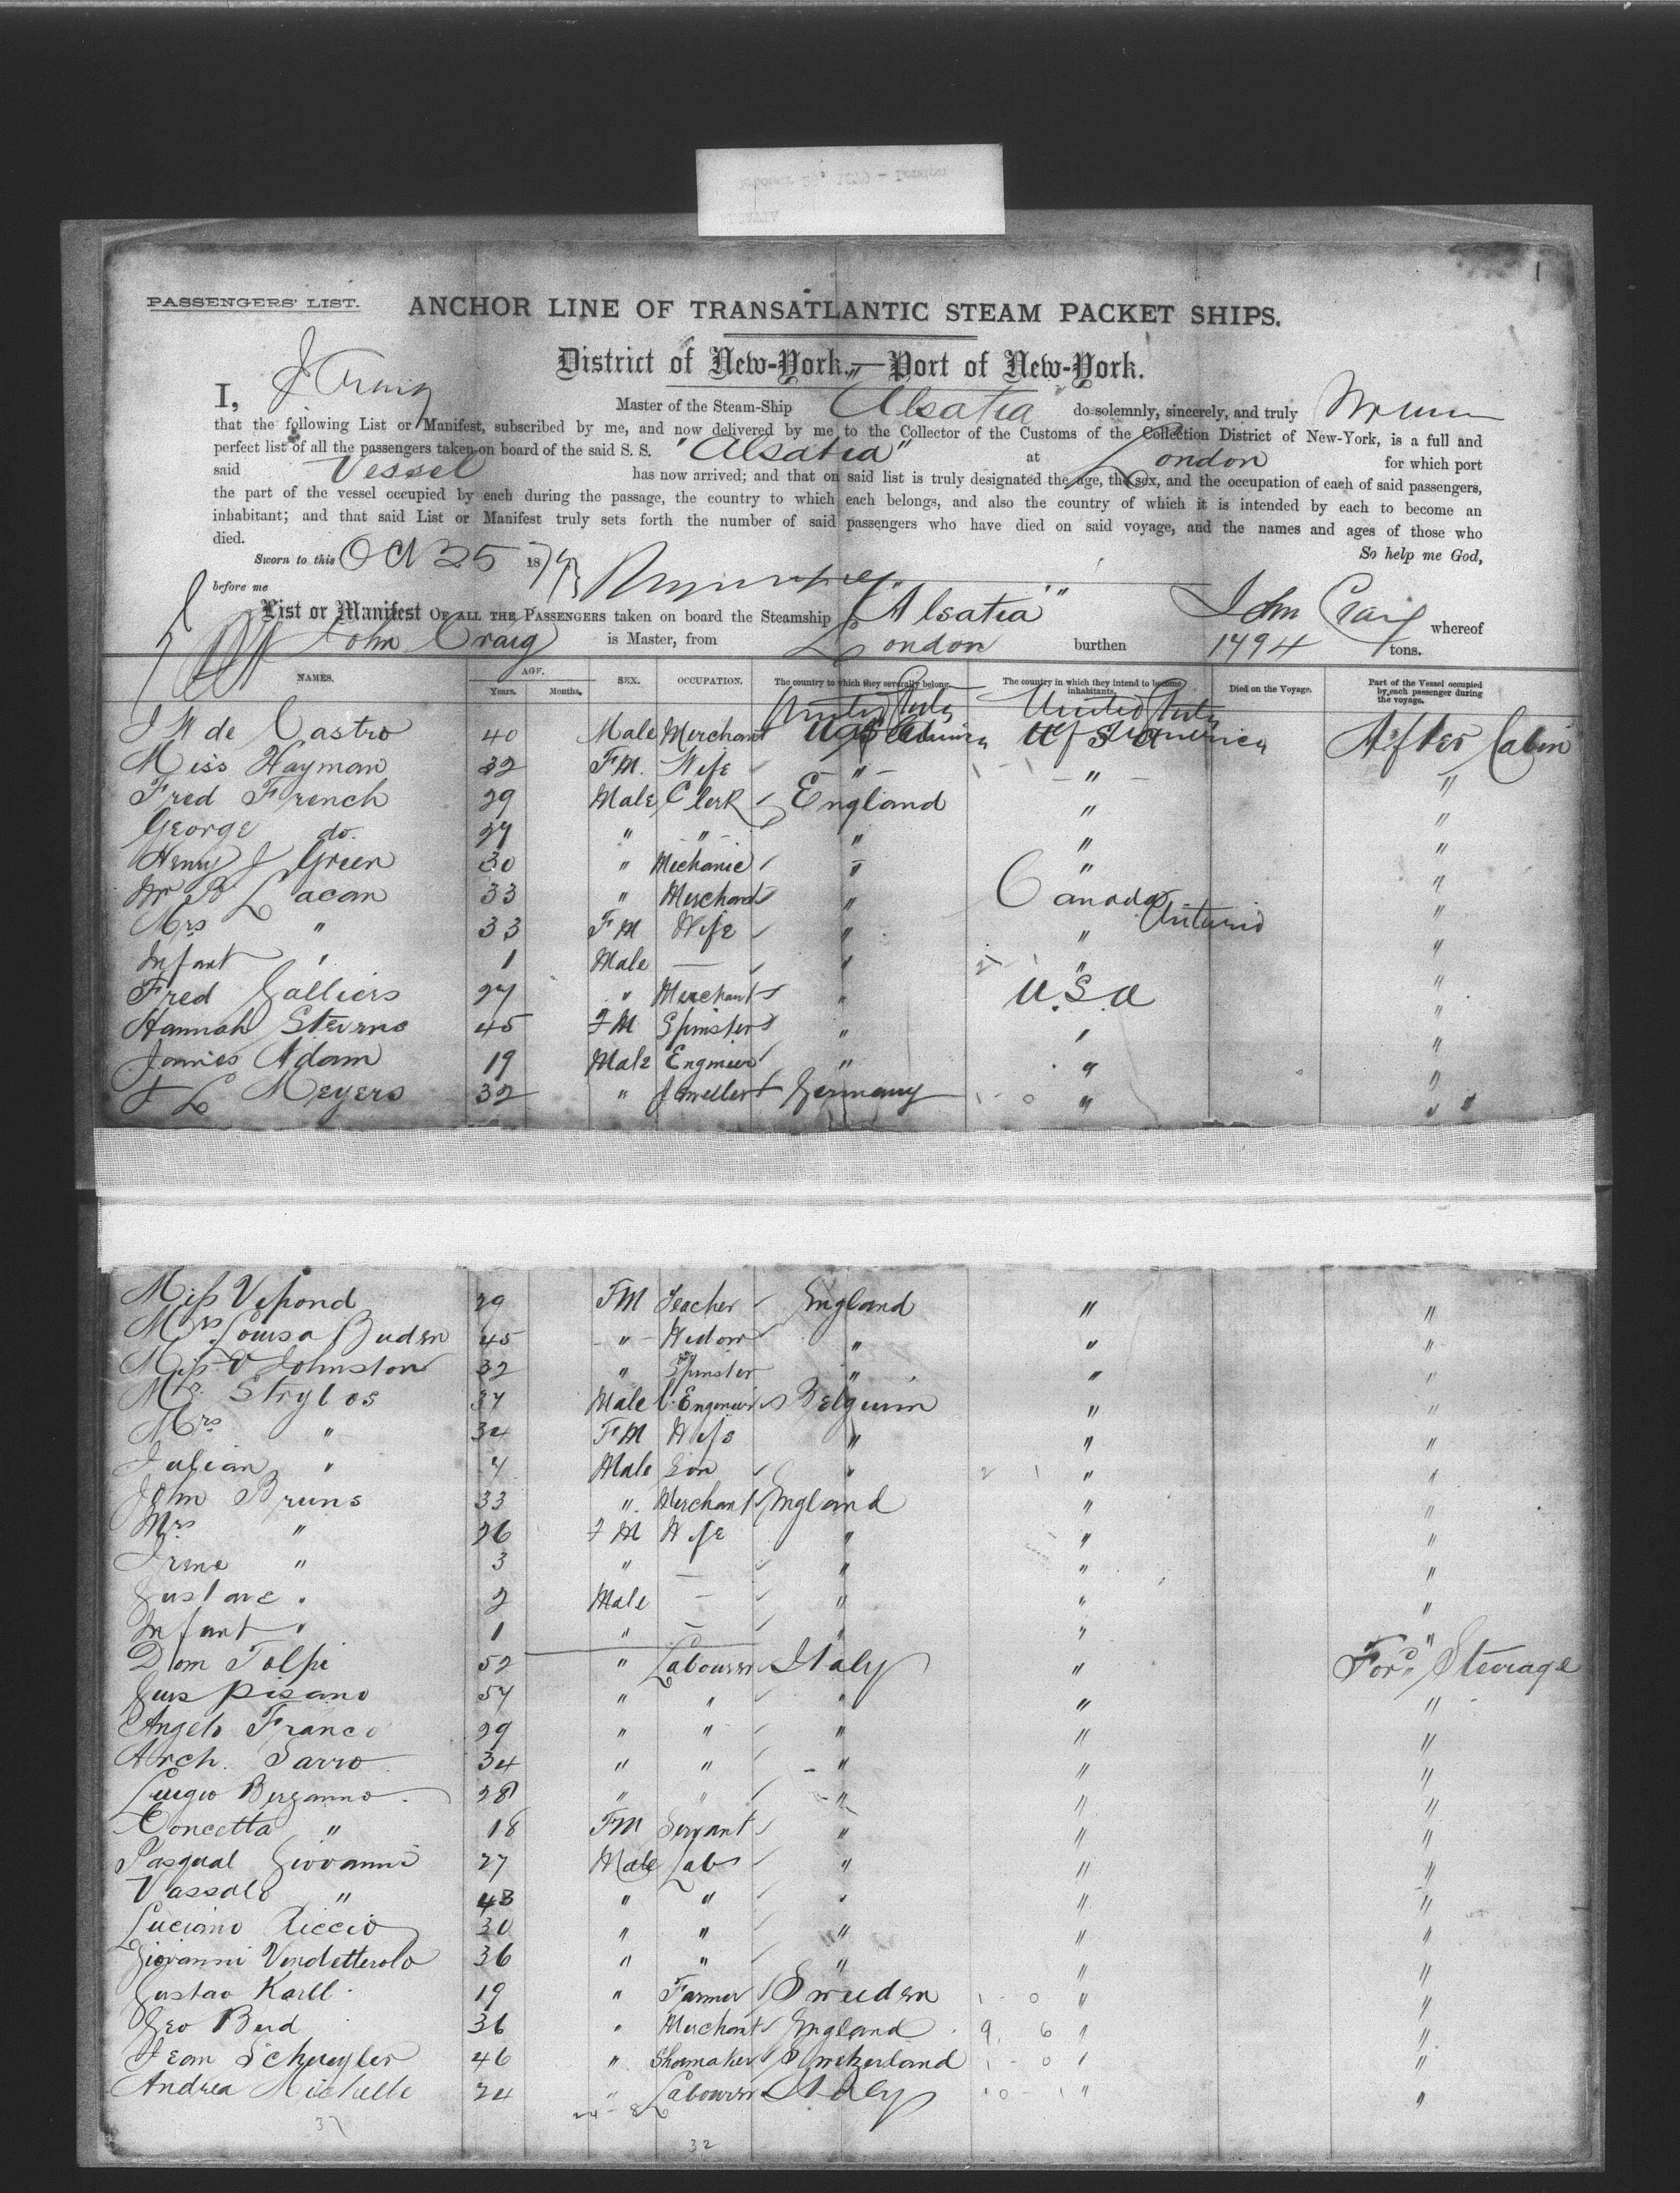 1
PASSENGERS' LIST.
ANCHOR LINE OF TRANSATLANTIC STEAM PACKET SHIPS.
District of New-York.—Port of New-York.
I, J Craig Master of the Steam-Ship "Alsatia" do solemnly, sincerely, and truly
that the following List or Manifest, subscribed by me, and now delivered by me to the Collector of the Customs of the Collection District of New-York, is a full and
perfect list of all the passengers taken on board of the said S. S. "Alsatia" at London for which port
said Vessel has now arrived; and that on said list is truly designated the age, the sex, and the occupation of each of said passengers,
the part of the vessel occupied by each during the passage, the country to which each belongs, and also the country of which it is intended by each to become an
inhabitant; and that said List or Manifest truly sets forth the number of said passengers who have died on said voyage, and the names and ages of those who
died. So help me God,
Sworn to this Oct 25 1879
before me
John Craig
List or Manifest OF ALL THE PASSENGERS taken on board the Steamship "Alsatia" whereof
John Craig is Master, from London burthen 1494 tons.
NAMES. AGE. SEX. OCCUPATION. The country to which they severally belong. The country in which they intend to become inhabitants. Died on the Voyage. Part of the Vessel occupied by each passenger during the voyage.
Years. Months.
United States United States
J W de Castro 40 Male Merchant of America of America After Cabin
Miss Hayman 32 FM. Wife " " "
Fred French 29 Male Clerk England " "
George do. 27 " " " " "
Henry J Green 30 " Mechanic " " "
Mr B Lacan 33 " Merchant " Canada Ontario "
Mrs " 33 FM Wife " " "
Infant " 1 Male — " " "
Fred Galliers 27 " Merchant " U.S.A "
Hannah Stevens 45 FM Spinster " " "
James Adam 19 Male Engineer " " "
F L Meyers 32 " Jeweller Germany " "
Miss Vipond 29 FM Teacher England " "
Mrs Louisa Buden 45 " Widow " " "
Miss V Johnston 32 " Spinster " " "
Mr. Strylos 37 Male C. Engineer Belguim " "
Mrs " 34 FM Wife " " "
Julian " 4 Male Son " " "
John Bruns 33 " Merchant England " "
Mrs " 26 FM Wife " " "
Irene " 3 " — " " "
Gustave " 2 Male — " " "
Infant " 1 " — " " "
Dom Tolpi 52 " Labourer Italy " Ford Steerage
Gius Pisano 54 " " " " "
Angelo Franco 29 " " " " "
Arch. Sarro 34 " " " " "
Luigio Berganno 28 " " " " "
Concetta " 18 FM Servant " " "
Pasqual Giovanni 27 Male Lab " " "
Vassalo " 48 " " " " "
Luciano Riccio 30 " " " " "
Giovanni Vendetterolo 36 " " " " "
Gustav Karll 19 " Farmer Sweeden 1 - 0 " "
Geo Bird 36 " Merchant England 9 6 " "
Jean Schuyler 46 " Shoemaker Switzerland 1 - 0 " "
Andrea Michelle 24 " Labourer Italy 10 - 1 " "
24 - 8
37
32